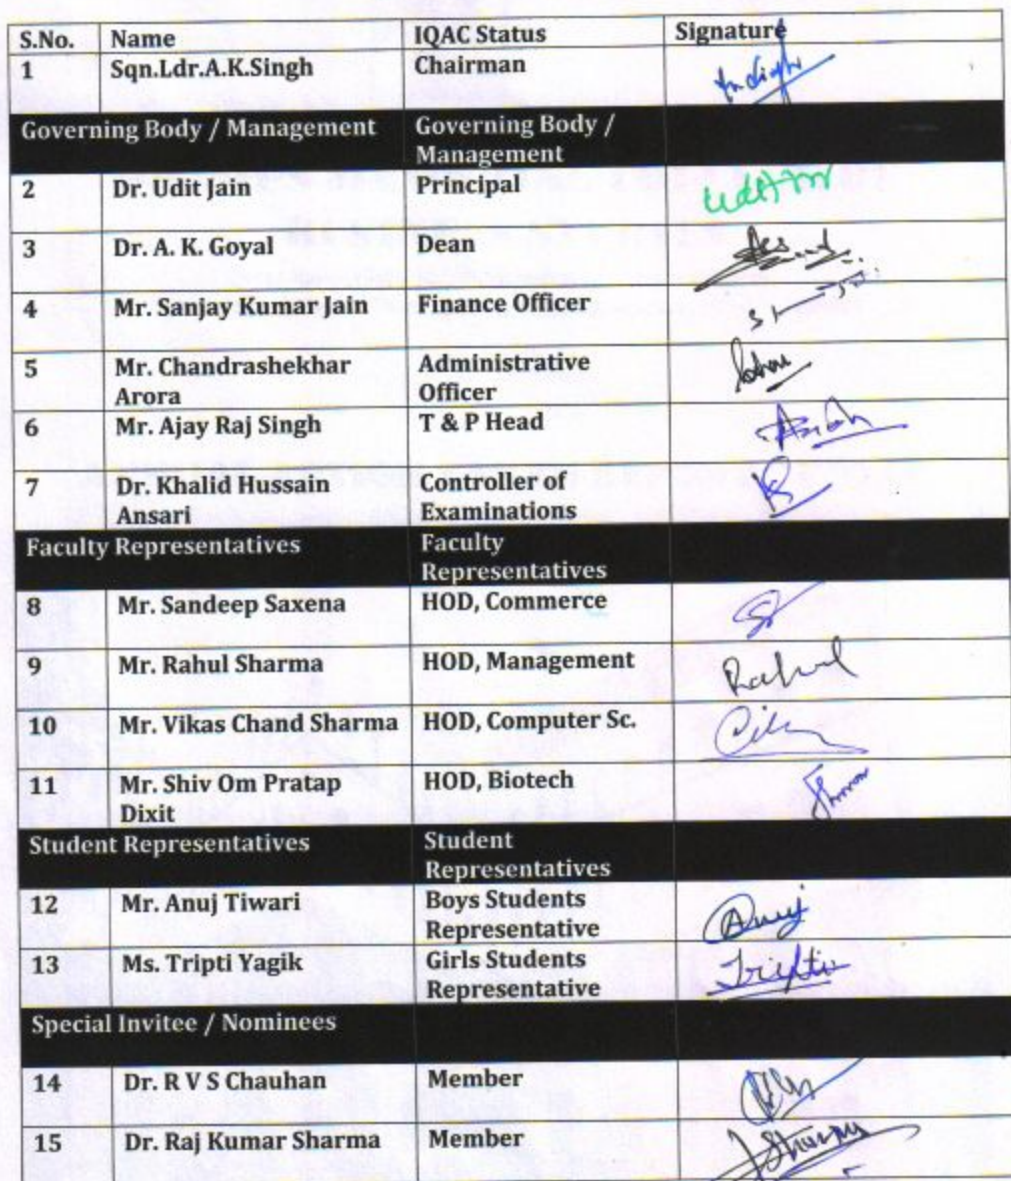 S.No. Name IQAC Status Signature
1 Sqn.Ldr.A.K.Singh Chairman
Governing Body / Management Governing Body /
Management
2 Dr. Udit Jain Principal
3 Dr. A. K. Goyal Dean
4 Mr. Sanjay Kumar Jain Finance Officer
5 Mr. Chandrashekhar Administrative
Arora Officer
6 Mr. Ajay Raj Singh T & P Head
7 Dr. Khalid Hussain Controller of
Ansari Examinations
Faculty Representatives Faculty
Representatives
8 Mr. Sandeep Saxena HOD, Commerce
9 Mr. Rahul Sharma HOD, Management Rahul
10 Mr. Vikas Chand Sharma HOD, Computer Sc.
11 Mr. Shiv Om Pratap HOD, Biotech
Dixit
Student Representatives Student
Representatives
12 Mr. Anuj Tiwari Boys Students
Representative Anuj
13 Ms. Tripti Yagik Girls Students
Representative Tripti
Special Invitee / Nominees
14 Dr. R V S Chauhan Member
15 Dr. Raj Kumar Sharma Member